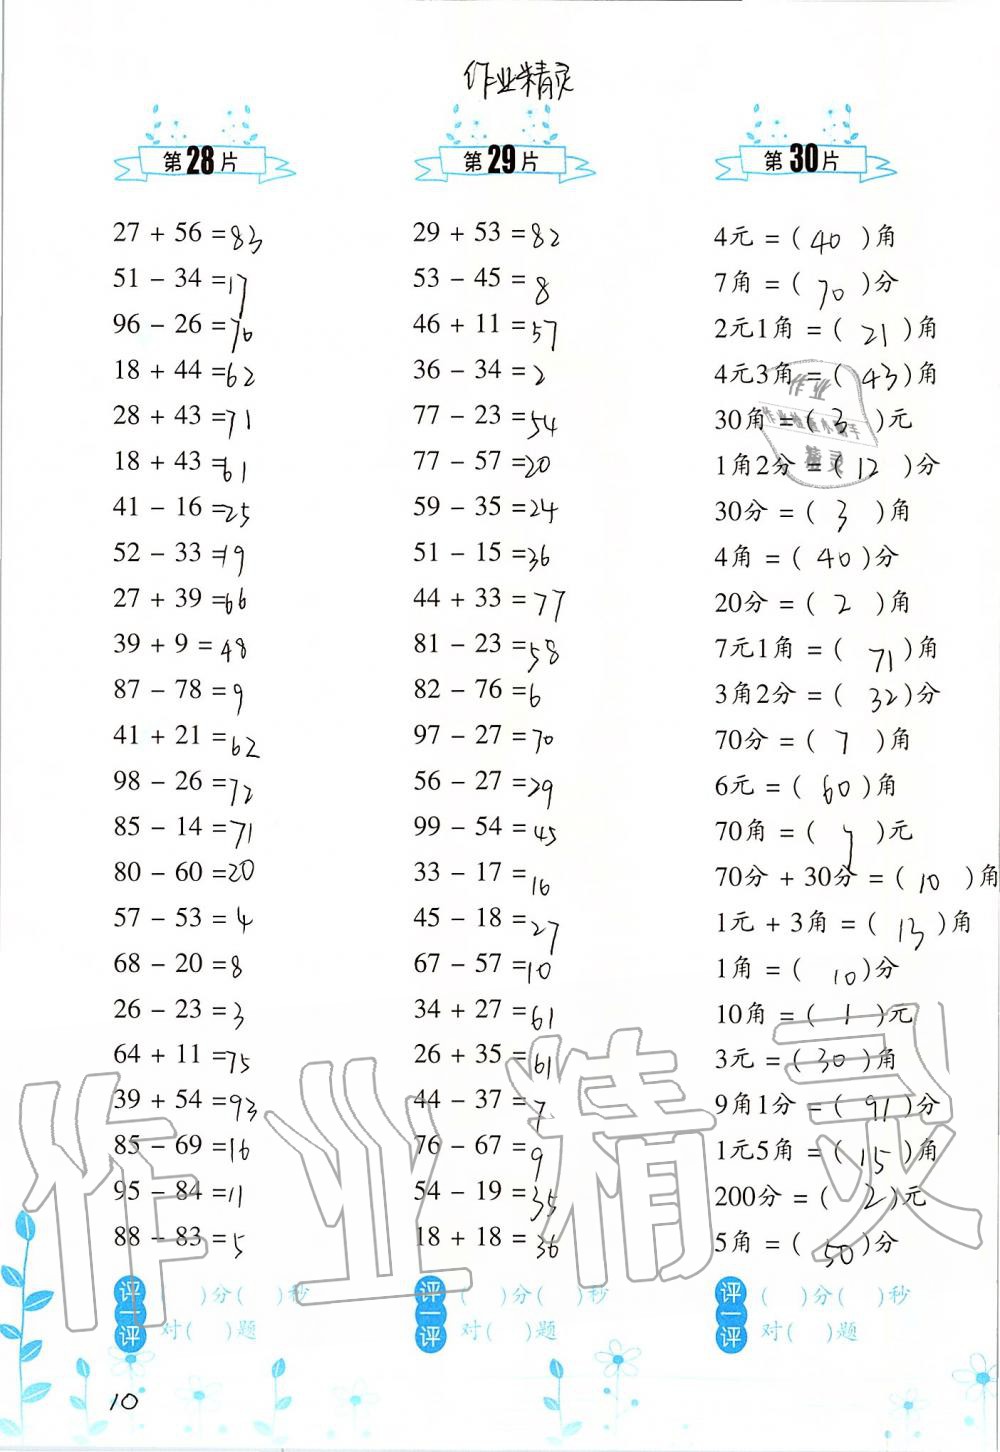 作业精灵
第28片
27 + 56 = 83
51 - 34 = 17
96 - 26 = 70
18 + 44 = 62
28 + 43 = 71
18 + 43 = 61
41 - 16 = 25
52 - 33 = 19
27 + 39 = 66
39 + 9 = 48
87 - 78 = 9
41 + 21 = 62
98 - 26 = 72
85 - 14 = 71
80 - 60 = 20
57 - 53 = 4
68 - 20 = 8
26 - 23 = 3
64 + 11 = 75
39 + 54 = 93
85 - 69 = 16
95 - 84 = 11
88 - 83 = 5
评一评 ( )分( )秒
对( )题
第29片
29 + 53 = 82
53 - 45 = 8
46 + 11 = 57
36 - 34 = 2
77 - 23 = 54
77 - 57 = 20
59 - 35 = 24
51 - 15 = 36
44 + 33 = 77
81 - 23 = 58
82 - 76 = 6
97 - 27 = 70
56 - 27 = 29
99 - 54 = 45
33 - 17 = 16
45 - 18 = 27
67 - 57 = 10
34 + 27 = 61
26 + 35 = 61
44 - 37 = 7
76 - 67 = 9
54 - 19 = 35
18 + 18 = 36
评一评 ( )分( )秒
对( )题
第30片
4元 = ( 40 )角
7角 = ( 70 )分
2元1角 = ( 21 )角
4元3角 = ( 43 )角
30角 = ( 3 )元
1角2分 = ( 12 )分
30分 = ( 3 )角
4角 = ( 40 )分
20分 = ( 2 )角
7元1角 = ( 71 )角
3角2分 = ( 32 )分
70分 = ( 7 )角
6元 = ( 60 )角
70角 = ( 7 )元
70分 + 30分 = ( 10 )角
1元 + 3角 = ( 13 )角
1角 = ( 10 )分
10角 = ( 1 )元
3元 = ( 30 )角
9角1分 = ( 91 )分
1元5角 = ( 15 )角
200分 = ( 2 )元
5角 = ( 50 )分
评一评 ( )分( )秒
对( )题
作业精灵
10